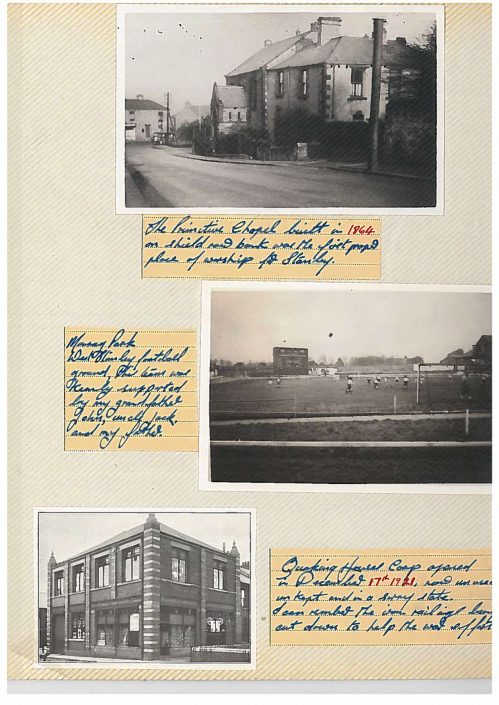 The Primitive Chapel built in 1864
on shield row bank was the first proper
place of worship for Stanley.
Murray Park
West Stanley football
ground, this team was
keenly supported
by my grandfather
John, uncle Jack,
and my father.
Quaking Houses Coop opened
in December 17th 1921, now unused
unkept and in a sorry state.
I can the iron railings being
cut down to help the war effort